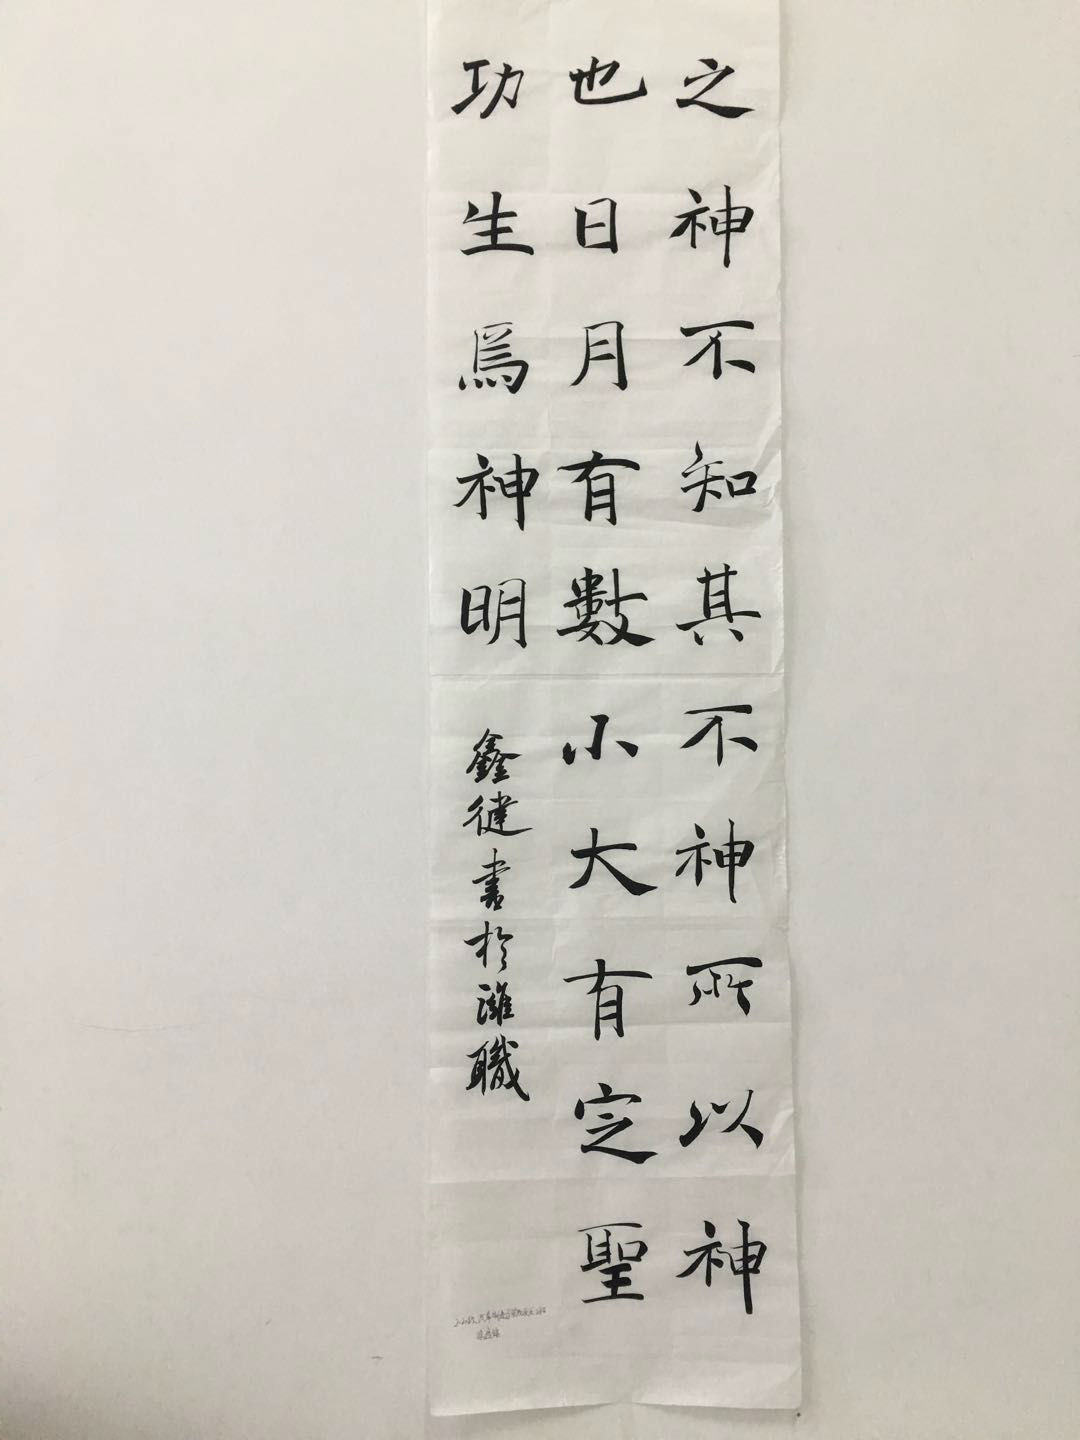 之神不知其不神所以神
也日月有數小大有定聖
功生焉神明
鑫健書於濰職